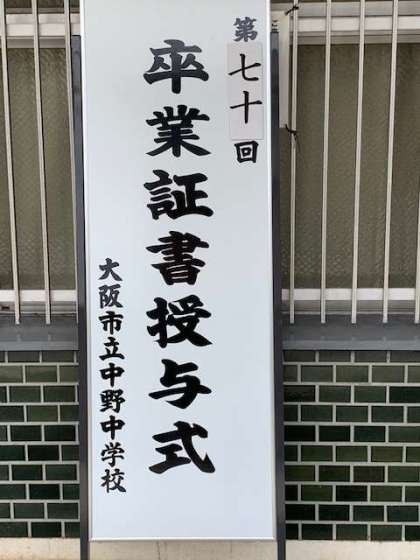 第七十回
卒業証書授与式
大阪市立中野中学校